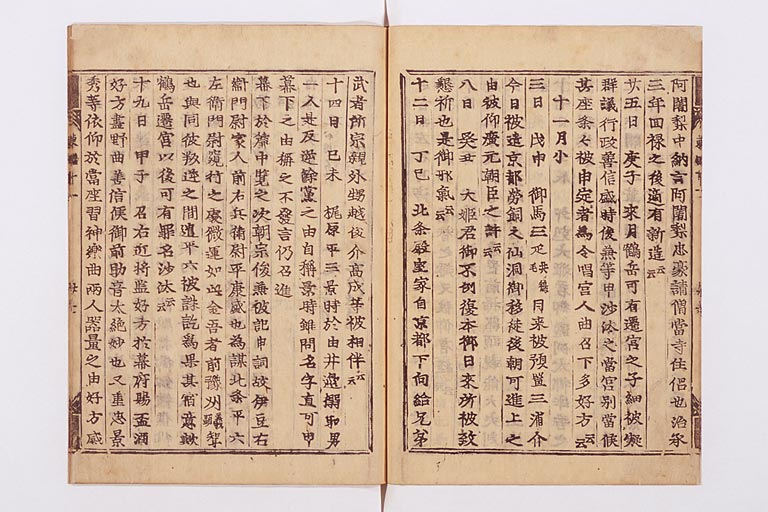 阿闍梨中納言阿闍梨忠豪請僧當寺住侶也治承
三年回禄之後適有新造云云
廿五日 庚子 來月鶴岳可有遷宮之子細被凝
群議行政善信盛時俊兼等申沙汰之當宮別當候
其座条々被申定者為令唱宮人曲召下多好方云云
十一月小
三日 戊申 御馬三疋 月来被預置三浦介
今日被遣京都労飼之仙洞御移徙後朝可進上之
由被仰廣元朝臣之許云云
八日 癸丑 大姫君御不例復本御日来所被致
懇祈也是御邪氣云云
十二日 丁巳 北条殿室家自京都下向給兄弟
武者所宗親外甥越後介高成等被相伴云云
十四日 己未 梶原平三景時於由井邊搦取男
一人是反逆餘黨之由自稱景時雖問名字直可申
幕下之由稱之不發言仍召進
幕下於簾中覧之次朝宗俊兼被記申詞故伊豆右
衛門尉家人前右兵衛尉平康盛也為謀北条平六
左衛門尉窺行之處微運如此金吾者前豫州聟
也與同彼叛逆之間遣平六被誅訖
鶴岳遷宮以後可有罪名沙汰云云
十九日 甲子 召右近將監好方於幕府賜盃酒
好方畫野曲善信候御前助音太絶妙也又重忠景
秀等依仰於當座習神樂曲兩人器量之由好方感
東鑑 十一